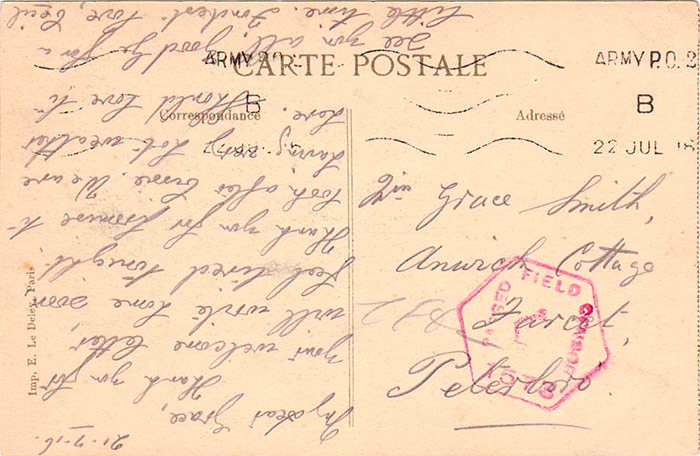 CARTE POSTALE
Correspondance
Adressé
ARMY P.O. 2
B
22 JUL 16
ARMY
B
Miss Grace Smith,
Anwich Cottage
Farcet,
Peterboro'
PASSED FIELD CENSOR
Imp. E. Le Deley, Paris
21-7-16.
My dear Grace,
Thank you for
your welcome letter,
will write soon
feel tired tonight.
Thank you for promise to
look after Ernie. We are
having very hot weather
here. Should love to
see you all, good bye for a
little time. Fondest love, Cecil